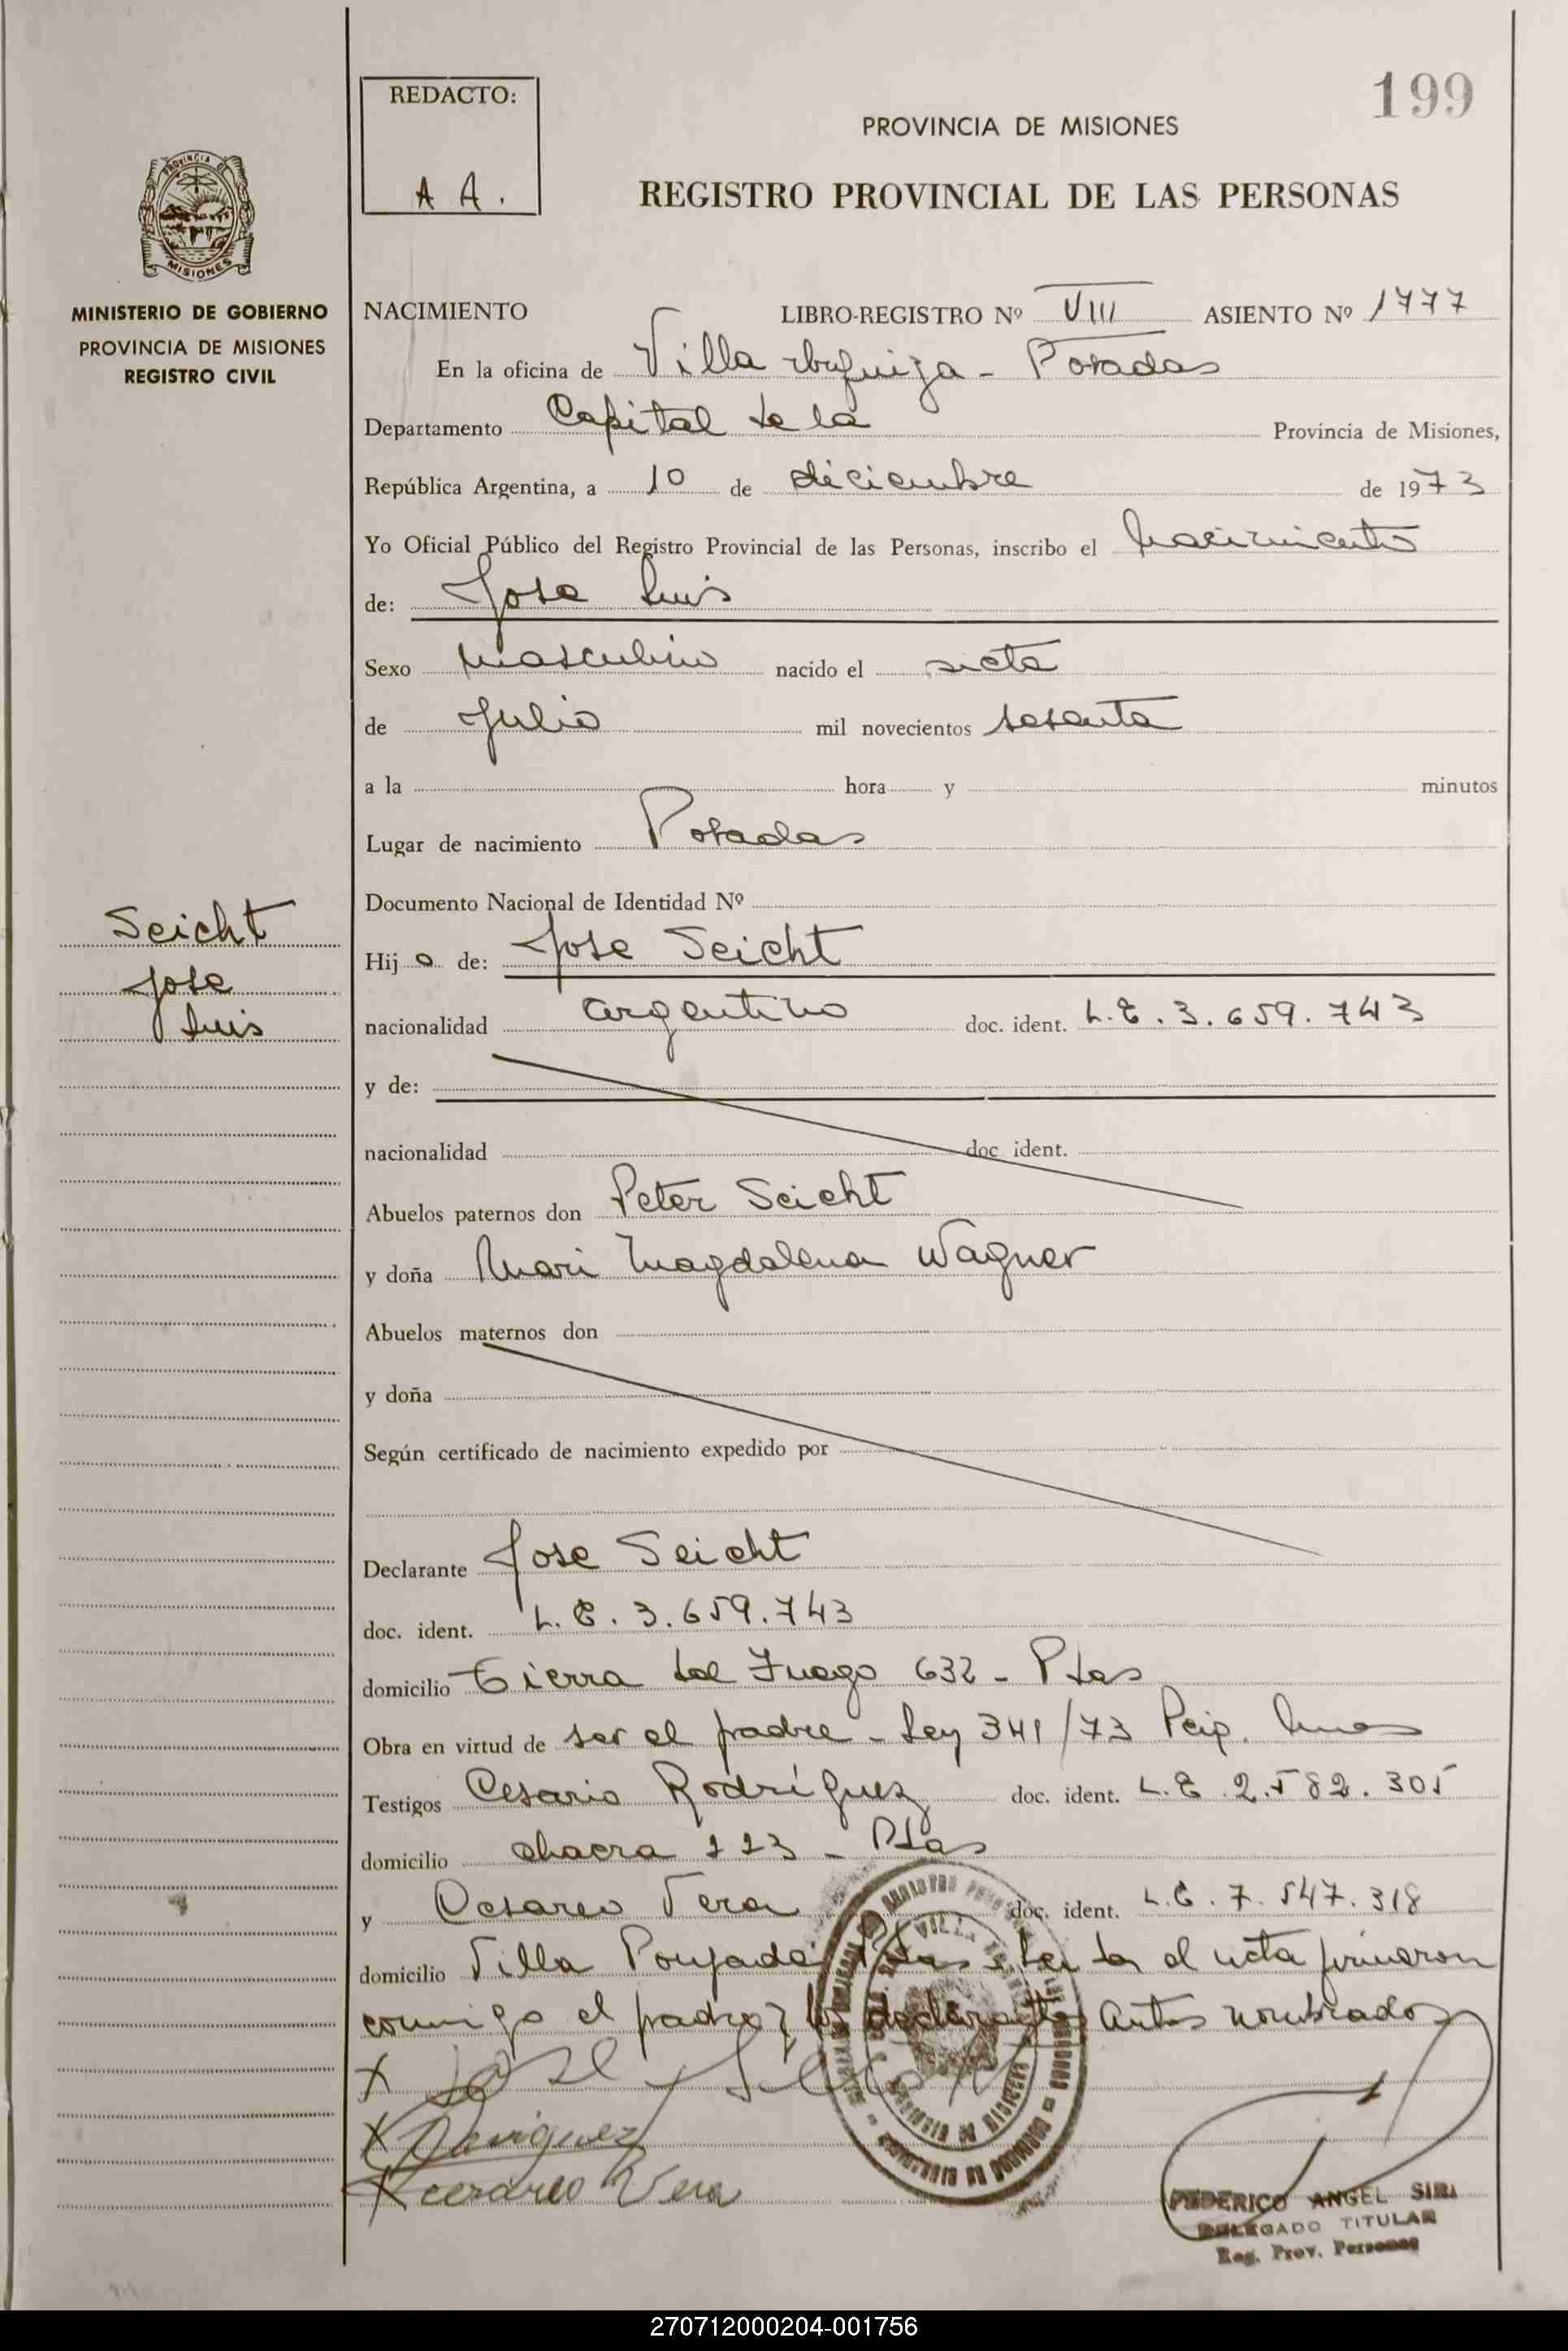 199
REDACTO:
A A.
PROVINCIA DE MISIONES
REGISTRO PROVINCIAL DE LAS PERSONAS
PROVINCIA DE
MISIONES
MINISTERIO DE GOBIERNO
PROVINCIA DE MISIONES
REGISTRO CIVIL
NACIMIENTO LIBRO-REGISTRO Nº VIII ASIENTO Nº 1777
En la oficina de Villa Urquiza - Posadas
Departamento Capital de la Provincia de Misiones,
República Argentina, a 10 de diciembre de 1973
Yo Oficial Público del Registro Provincial de las Personas, inscribo el nacimiento
de: Jose Luis
Sexo masculino nacido el siete
de Julio mil novecientos sesenta
a la hora y minutos
Lugar de nacimiento Posadas
Documento Nacional de Identidad Nº
Seicht
Jose
Luis
Hij o de: Jose Seicht
nacionalidad argentino doc. ident. L.E. 3.659.743
y de:
nacionalidad doc ident.
Abuelos paternos don Peter Seicht
y doña Mari Magdalena Wagner
Abuelos maternos don
y doña
Según certificado de nacimiento expedido por
Declarante Jose Seicht
doc. ident. L.E. 3.659.743
domicilio Tierra del Fuego 632 - Pdas
Obra en virtud de ser el padre - Ley 341/73
Testigos Cesario Rodríguez doc. ident. L.E 2.582.305
domicilio chacra 123 - Pdas
y Cesareo Vera doc. ident. L.E. 7.547.318
domicilio Villa Poujade Pdas leida el acta firmaron
conmigo el padre y los declarantes antes nombrados
X Jose Seicht
X Rodriguez
X cesareo Vera
FEDERICO ANGEL SIRI
DELEGADO TITULAR
Reg. Prov. Personas
270712000204-001756